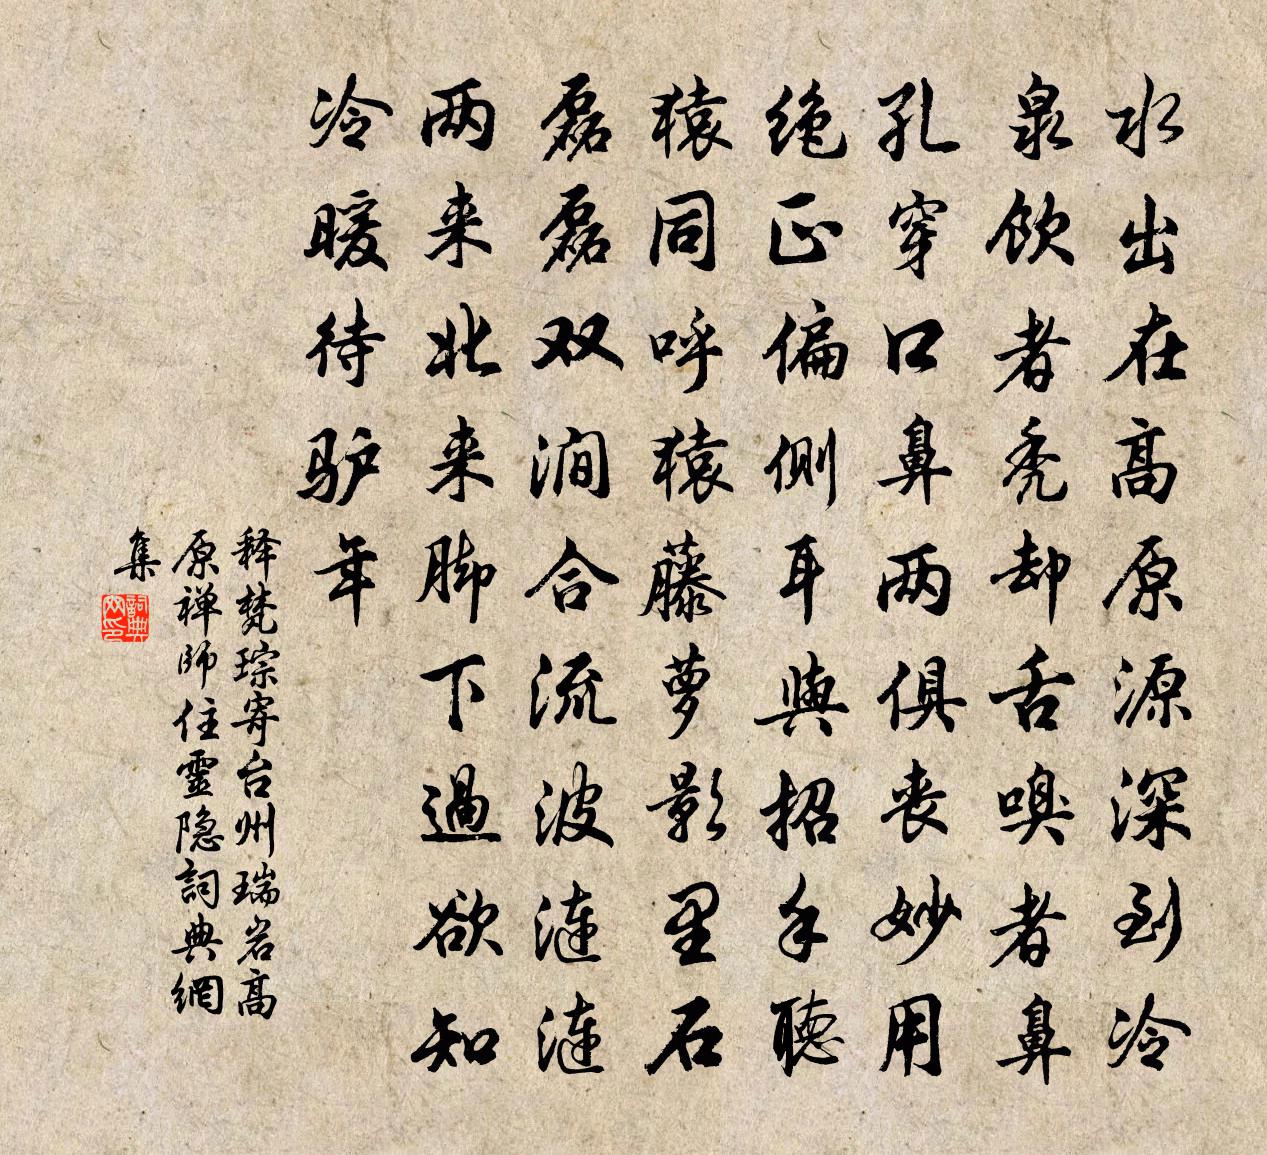 水出在高原源深到冷
泉饮者秃却舌嗅者鼻
孔穿口鼻两俱丧妙用
绝正偏侧耳與招手聽
猿同呼猿藤萝影里石
磊磊双涧合流波涟涟
两来北来脚下過欲知
冷暖待驴年
释梵琮寄台州瑞岩高
原禅師住靈隐詞典網
集
詞典網印